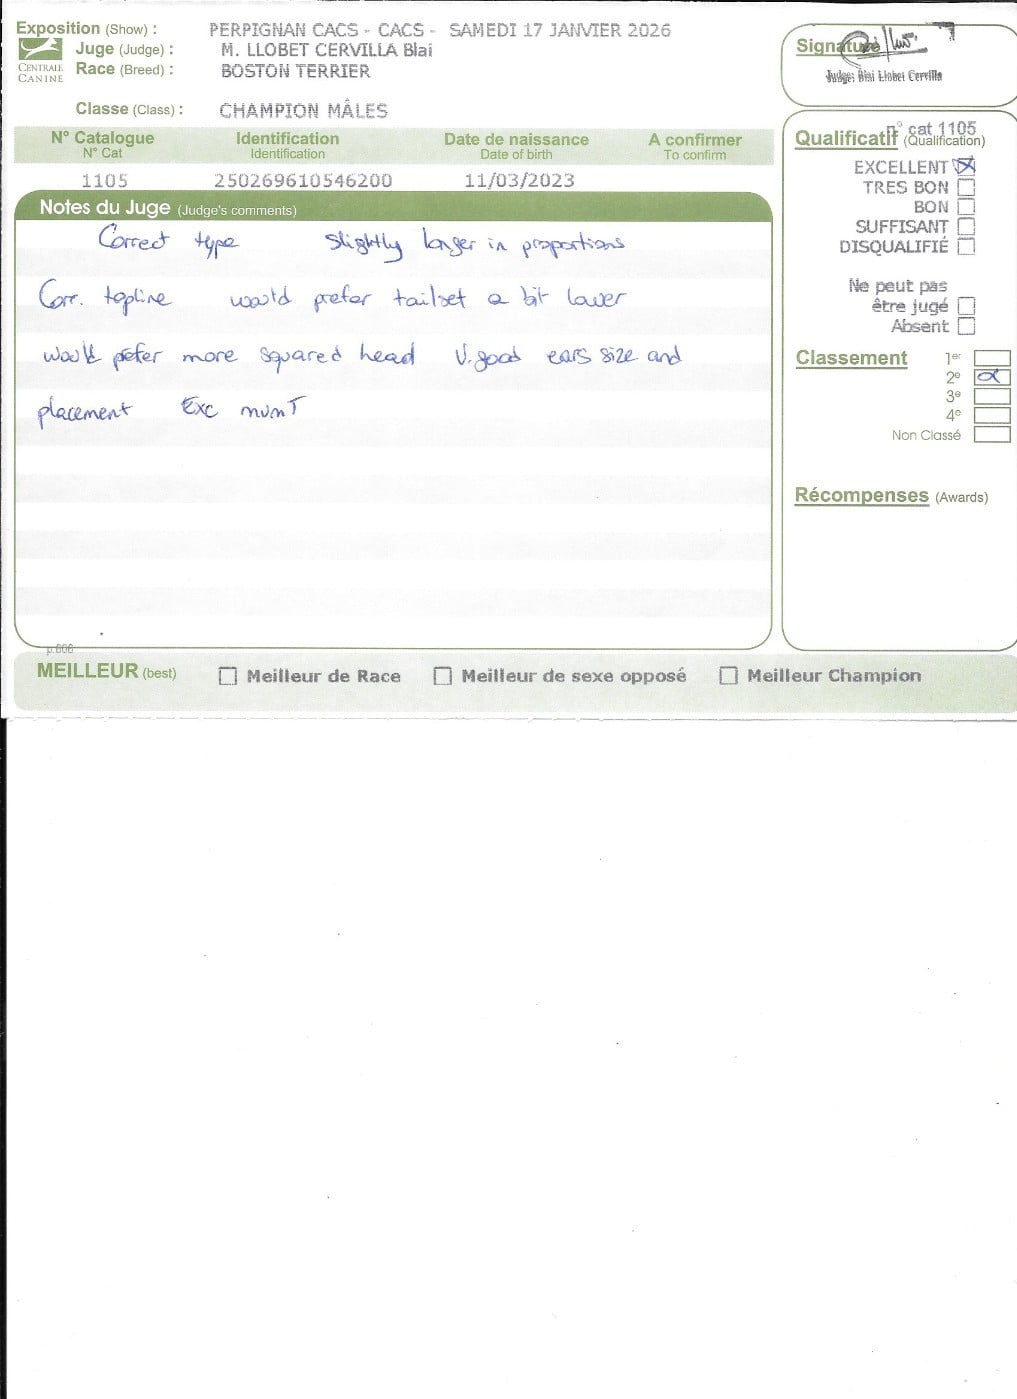 Exposition (Show) : PERPIGNAN CACS - CACS - SAMEDI 17 JANVIER 2026
CENTRALE CANINE
Juge (Judge) : M. LLOBET CERVILLA Blai
Race (Breed) : BOSTON TERRIER
Classe (Class) : CHAMPION MÂLES
Signature
Judge: Blai Llobet Cervilla
N° Catalogue Identification Date de naissance A confirmer
N° Cat Identification Date of birth To confirm
1105 250269610546200 11/03/2023
Notes du Juge (Judge's comments)
Correct type slightly longer in proportions
Corr. topline would prefer tailset a bit lower
would prefer more squared head V.good ears size and
placement Exc mvmT
n° cat 1105
Qualificatif (Qualification)
EXCELLENT
TRES BON
BON
SUFFISANT
DISQUALIFIÉ
Ne peut pas
être jugé
Absent
Classement 1er
2e
3e
4e
Non Classé
Récompenses (Awards)
p.606
MEILLEUR (best) Meilleur de Race Meilleur de sexe opposé Meilleur Champion